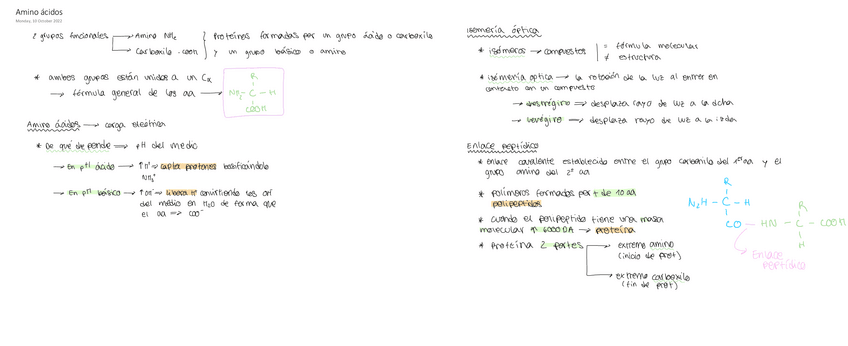 Amino ácidos
Monday, 10 October 2022
2 grupos funcionales → Amino NH₂
→ Carboxilo - COOH
Proteínas formadas por un grupo ácido o carboxilo
y un grupo básico o amino
* ambos grupos están unidos a un Cα
→ fórmula general de los aa →
R
NH₂ - C - H
COOH
Amino ácidos → carga eléctrica
* De qué depende ⇒ pH del medio
→ En pH ácido → ↑H⁺ ⇒ capta protones
NH₃⁺
→ En pH básico → ↑OH⁻ ⇒ libera H⁺ convirtiendo los OH⁻
del medio en H₂O de forma que
el aa ⇒ COO⁻
Isomería óptica
* isómeros → compuestos | = fórmula molecular
≠ estructura
* isomería óptica → la rotación de la luz al entrar en
contacto con un compuesto
→ dextrógiro ⇒ desplaza rayo de luz a la dcha
→ levógiro ⇒ desplaza rayo de luz a la izda
Enlace peptídico
* enlace covalente establecido entre el grupo carboxilo del 1º aa y el
grupo amino del 2º aa
* polímeros formados por + de 10 aa
polipéptidos
* cuando el polipéptido tiene una masa
molecular ↑ 6000 DA → proteína
* Proteína 2 partes → extremo amino
(inicio de prot)
→ extremo carboxilo
(fin de prot)
R
N₂H - C - H
CO - HN - C - COOH
R
H
Enlace
peptídico